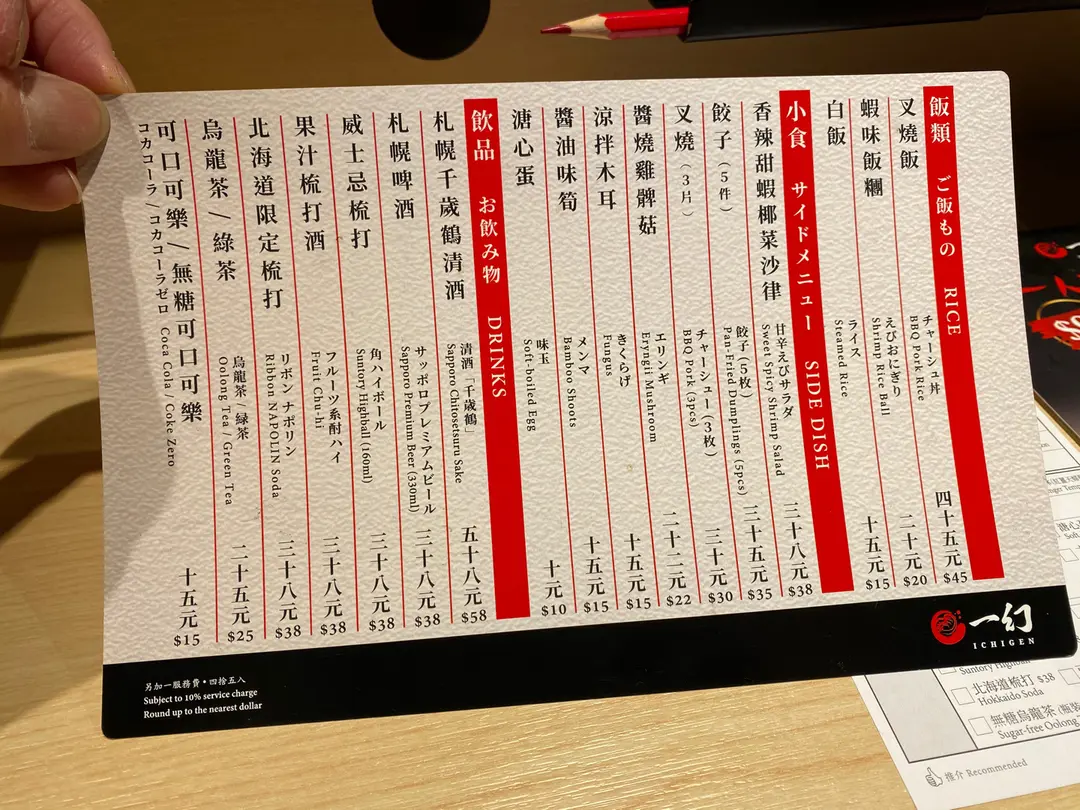 飯類 ご飯もの RICE
叉燒飯
チャーシュ丼
BBQ Pork Rice
四十五元
$45
蝦味飯糰
えびおにぎり
Shrimp Rice Ball
二十元
$20
白飯
ライス
Steamed Rice
十五元
$15
小食 サイドメニュー SIDE DISH
香辣甜蝦椰菜沙律
甘辛えびサラダ
Sweet Spicy Shrimp Salad
三十八元
$38
餃子（5件）
餃子（5枚）
Pan-Fried Dumplings (5pcs)
三十五元
$35
叉燒（3片）
チャーシュー（3枚）
BBQ Pork (3pcs)
三十元
$30
醬燒雞髀菇
エリンギ
Eryngii Mushroom
二十二元
$22
涼拌木耳
きくらげ
Fungus
十五元
$15
醬油味筍
メンマ
Bamboo Shoots
十五元
$15
溏心蛋
味玉
Soft-boiled Egg
十元
$10
飲品 お飲み物 DRINKS
札幌千歲鶴清酒
清酒「千歳鶴」
Sapporo Chitosetsuru Sake
五十八元
$58
札幌啤酒
サッポロプレミアムビール
Sapporo Premium Beer (330ml)
三十八元
$38
威士忌梳打
角ハイボール
Suntory Highball (160ml)
三十八元
$38
果汁梳打酒
フルーツ系酎ハイ
Fruit Chu-hi
三十八元
$38
北海道限定梳打
リボン ナポリン
Ribbon NAPOLIN Soda
三十八元
$38
烏龍茶 / 綠茶
烏龍茶 / 緑茶
Oolong Tea / Green Tea
二十五元
$25
可口可樂 / 無糖可口可樂
コカコーラ / コカコーラゼロ Coca Cola / Coke Zero
十五元
$15
一幻
ICHIGEN
另加一服務費・四捨五入
Subject to 10% service charge
Round up to the nearest dollar
Suntory Highball
北海道梳打 $38
Hokkaido Soda
無糖烏龍茶
Sugar-free Oolong
推介 Recommended